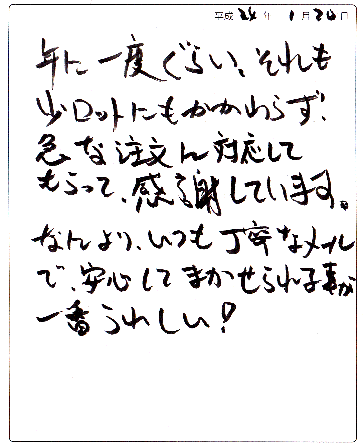 平成 24 年 1 月 20 日
年に一度ぐらい、それも
少ロットにもかかわらず、
急な注文に対応して
もらって、感謝しています。
なにより、いつも丁寧なメール
で、安心してまかせられる事が
一番うれしい!